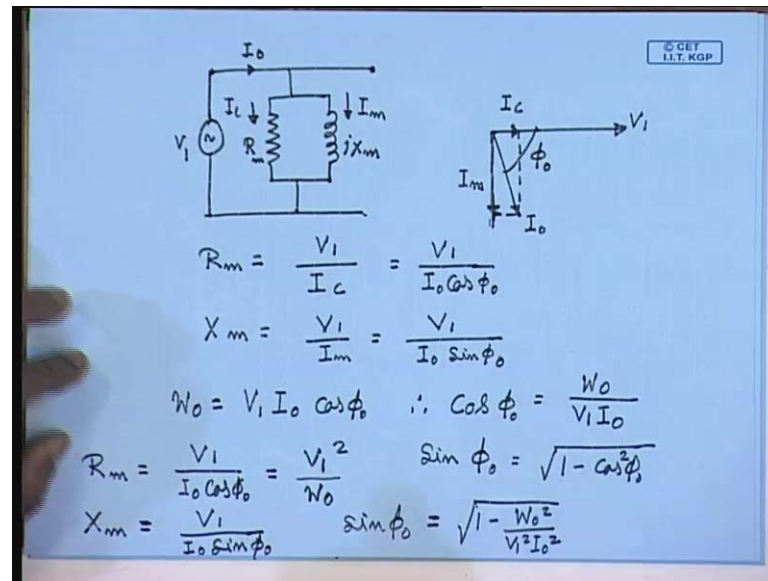 © CET
I.I.T. KGP
I₀
I_c I_m
V₁ R_m jX_m
I_c V₁
φ₀
I_m
I₀
R_m = V₁ / I_c = V₁ / (I₀ Cos φ₀)
X_m = V₁ / I_m = V₁ / (I₀ Sin φ₀)
W₀ = V₁ I₀ cos φ₀ ∴ Cos φ₀ = W₀ / (V₁ I₀)
R_m = V₁ / (I₀ Cos φ₀) = V₁² / W₀ Sin φ₀ = √(1 - Cos² φ₀)
X_m = V₁ / (I₀ Sin φ₀) sin φ₀ = √(1 - W₀² / (V₁² I₀²))